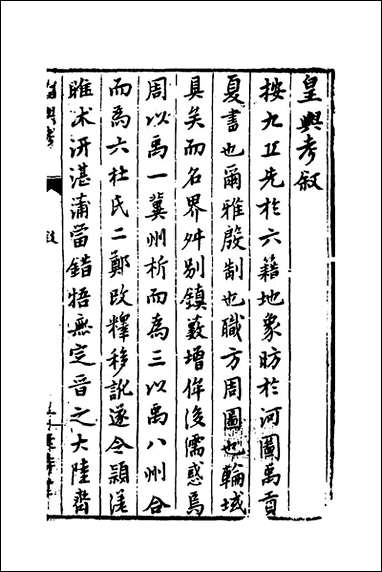 皇輿考叙
按九丘先於六籍地象昉於河圖禹貢
夏書也爾雅殷制也職方周圖也輪域
具矣而名界舛別鎮藪增侔後儒惑焉
周以禹一冀州析而為三以禹八州合
而為六杜氏二鄭改釋移訛遂令潁湛
雎沭汧湛蒲當錯牾無定晉之大陸齊